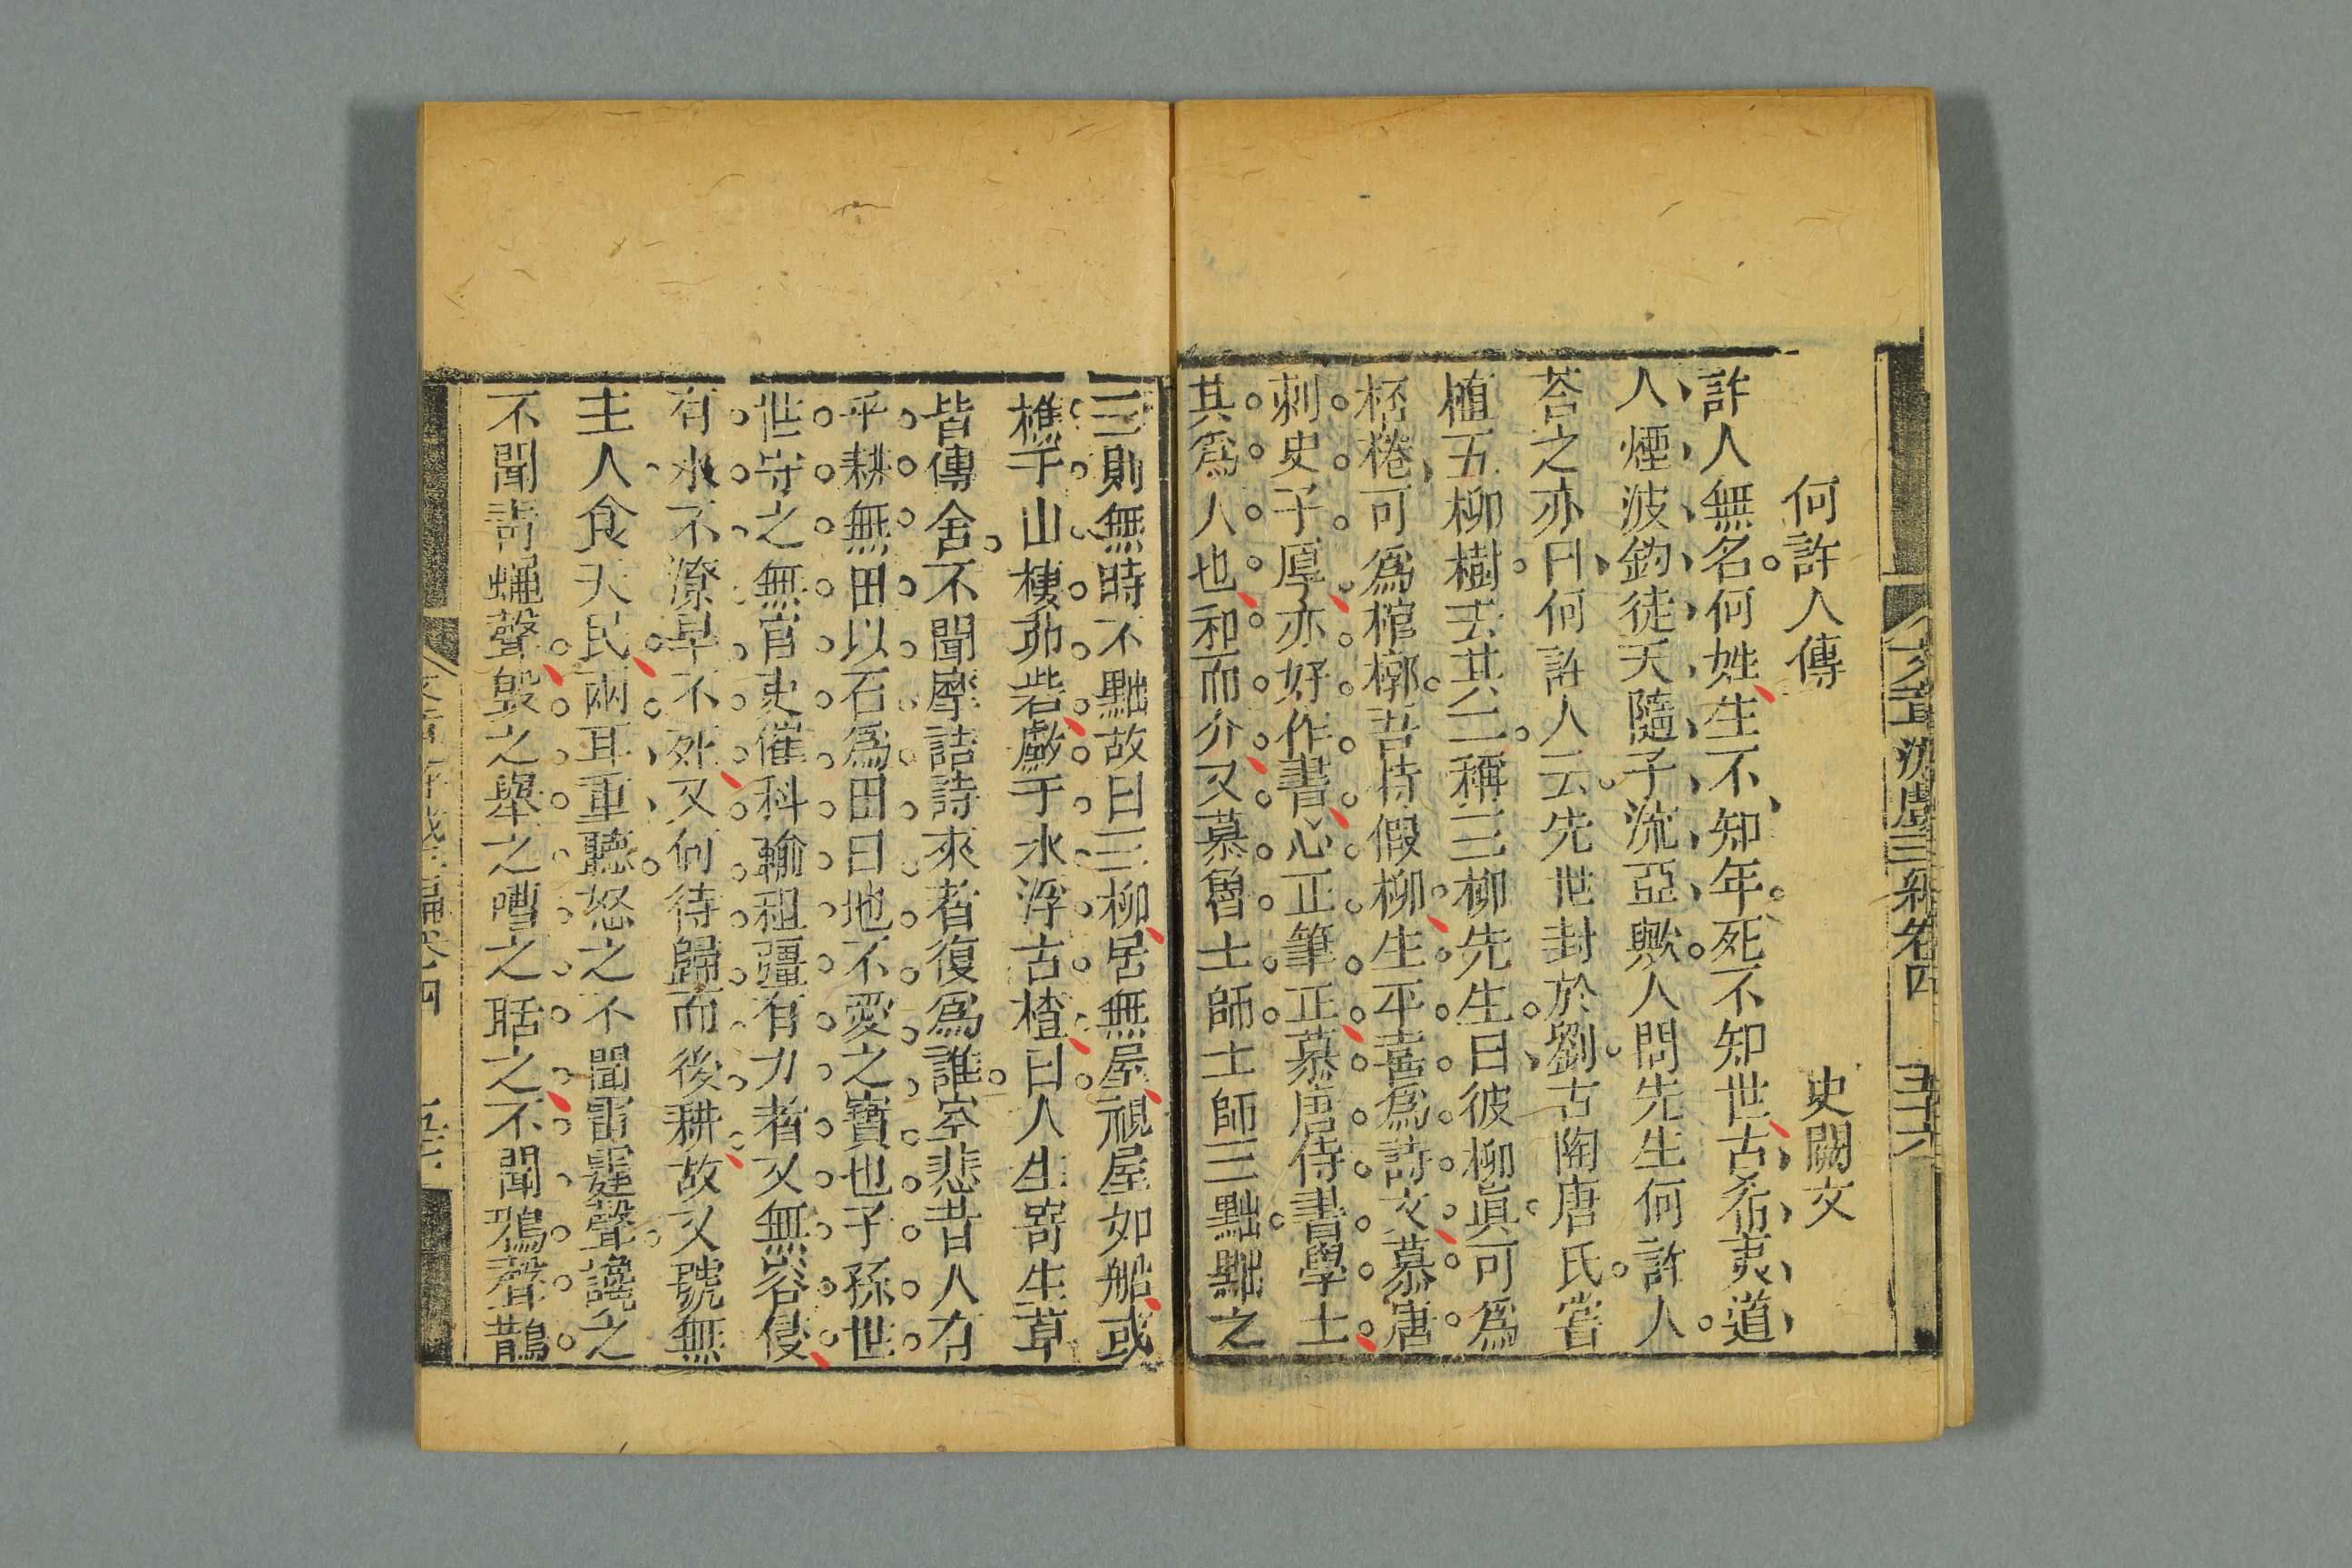 何許人傳　史闕文
許人無名何姓生不知年死不知世古希夷道
人煙波釣徒天隨子流亞歟人問先生何許人
荅之亦曰何許人云先世封於劉古陶唐氏嘗
植五柳樹去其二稱三柳先生曰彼柳眞可爲
桮棬可爲棺槨吾待假柳生平喜爲詩文慕唐
刺史子厚亦好作書心正筆正慕唐侍書學士
其爲人也和而介又慕魯士師士師三黜黜之
三則無時不黜故曰三柳居無屋視屋如船或
樵于山棲卯砦戲于水浮古楂曰人生寄生草
皆傳舍不聞摩詰詩來者復爲誰空悲昔人有
乎耕無田以石爲田曰地不愛之寶也子孫世
世守之無官吏催科輸租疆有力者又無容侵
有水不潦旱不死又何待歸而後耕故又號無
主人食天民兩耳重聽怒之不聞雷霆聲讒之
不聞靑蠅聲毀之舉之嘈之聒之不聞鴉聲鵲